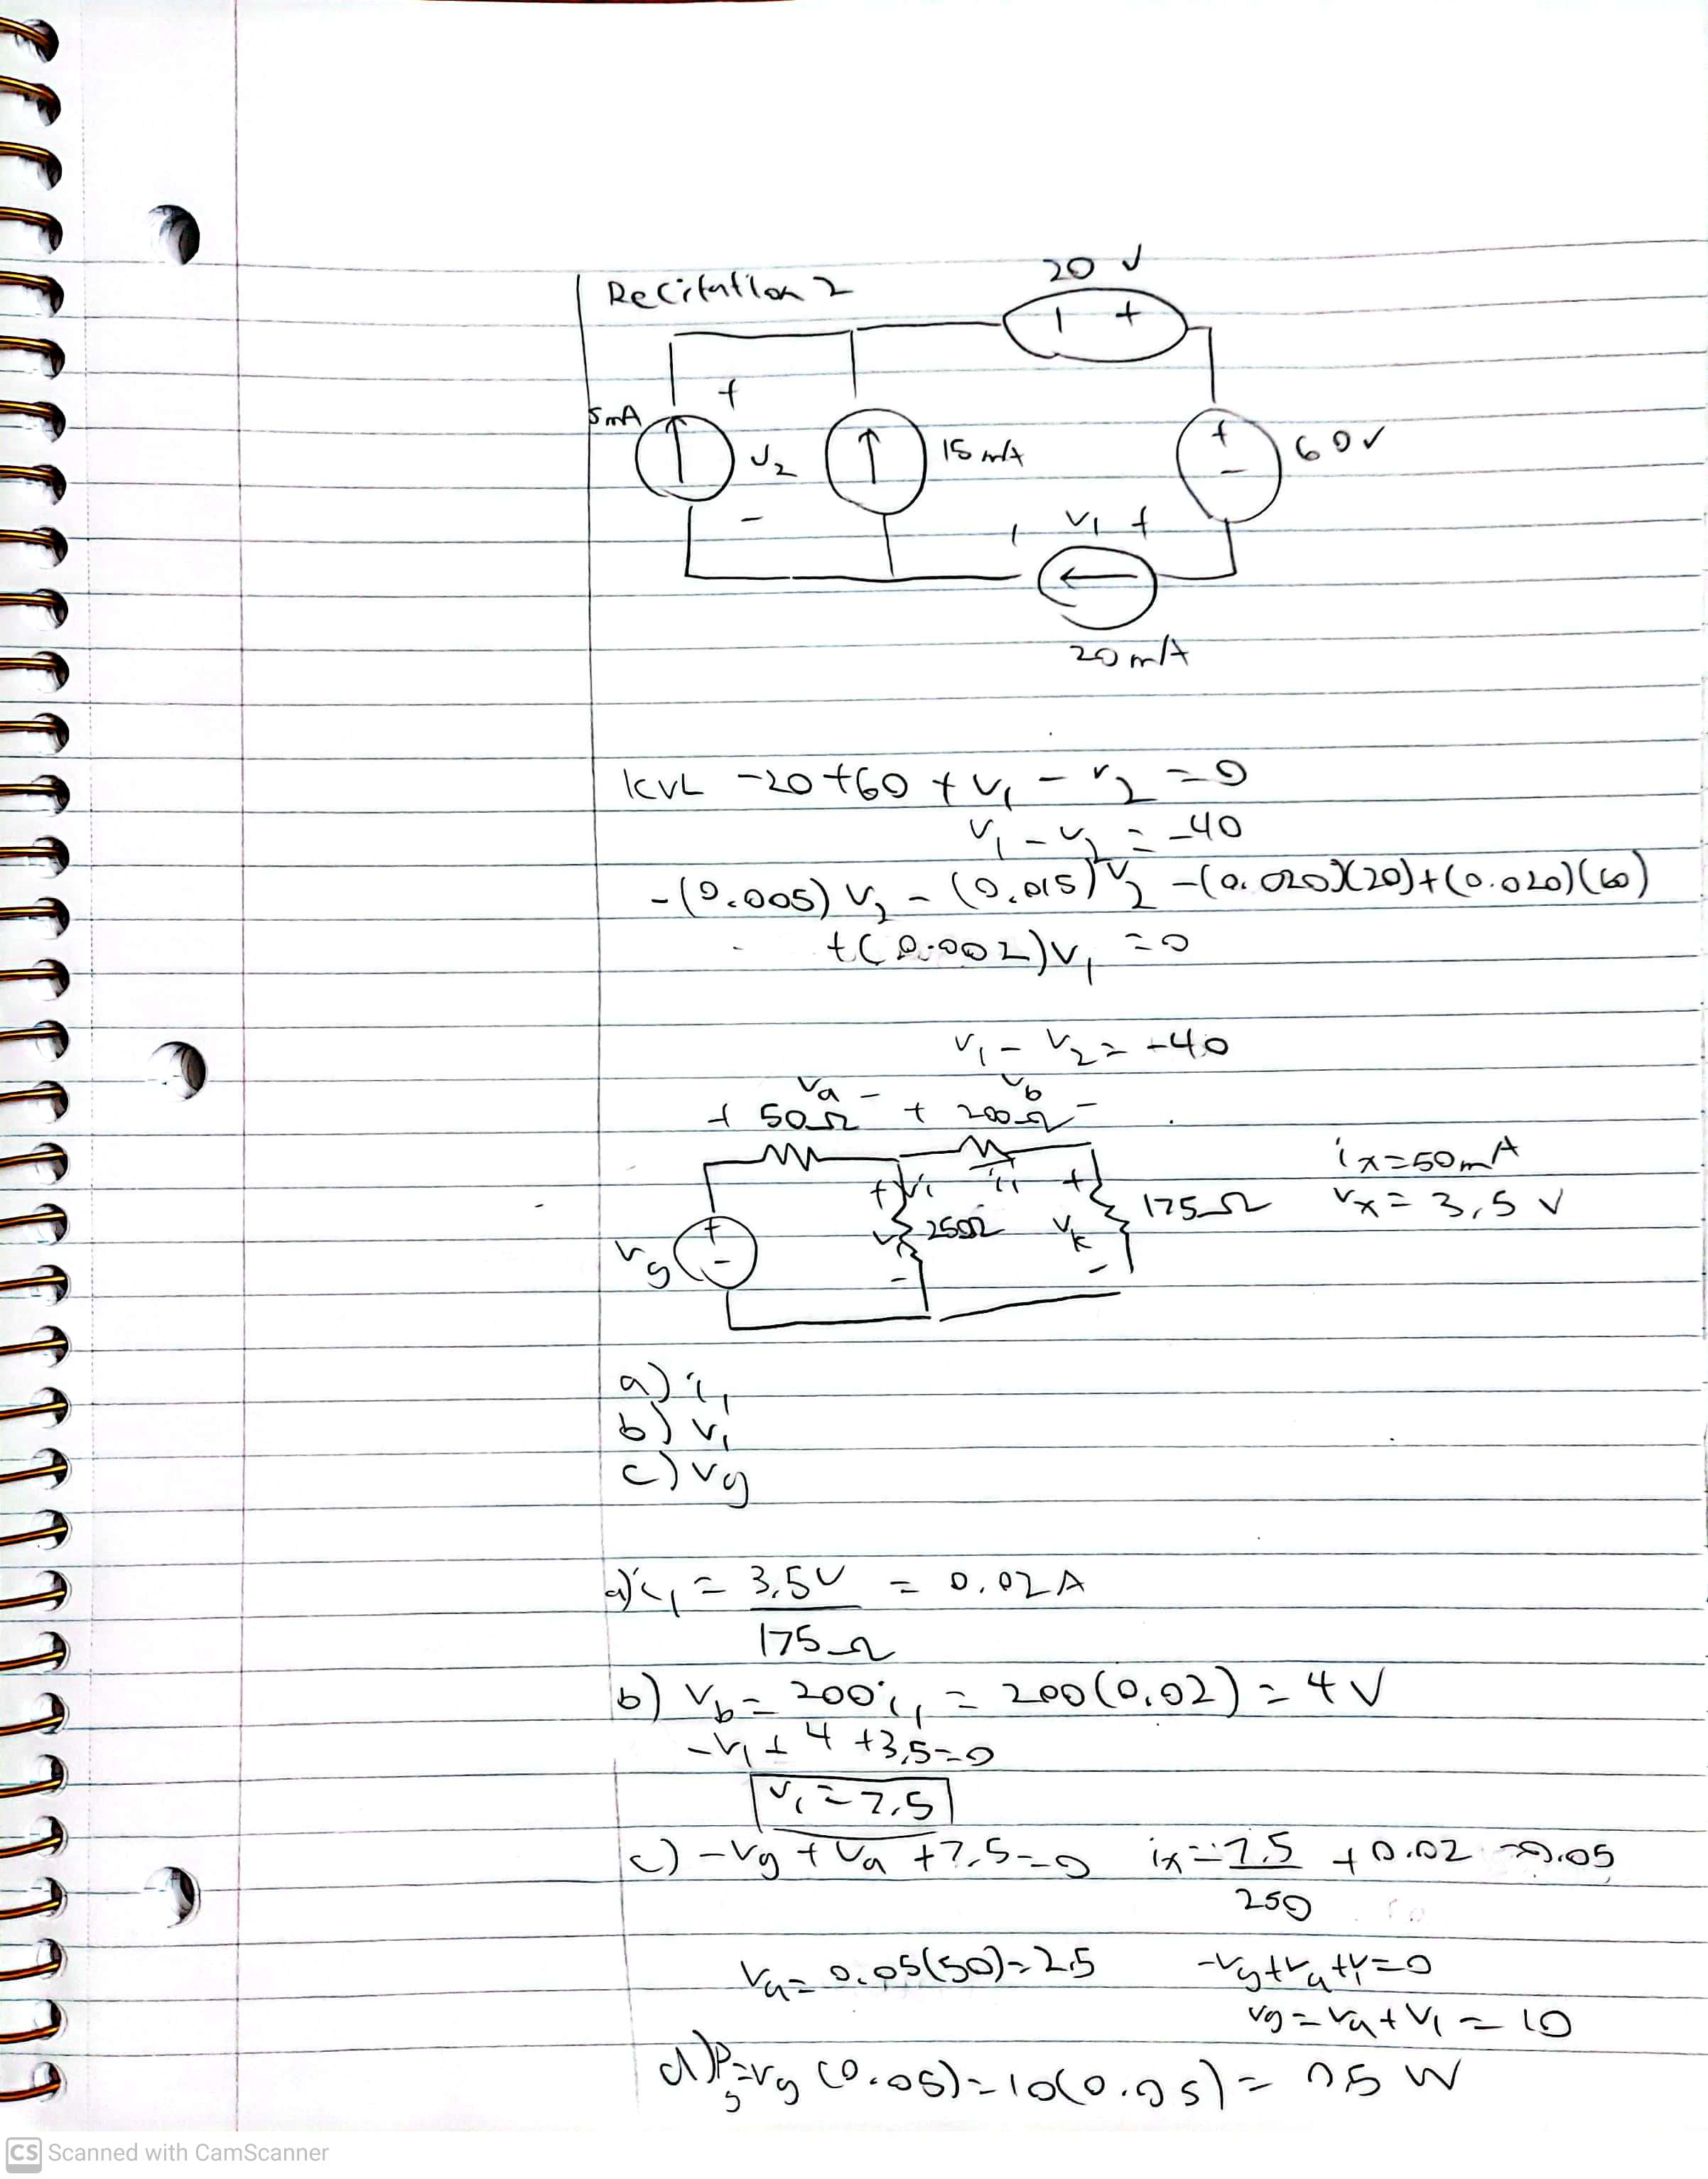 Recitation 2
20 V
- +
5mA
+
V2
-
15 mA
+
-
60V
- V1 +
20 mA
KVL -20 +60 + V1 - V2 = 0
V1 - V2 = -40
-(0.005) V2 - (0.015) V2 - (0.020)(20) + (0.020)(60)
+(0.002)V1 = 0
V1 - V2 = -40
Va - Vb
+ 50Ω + 200Ω -
ix = 50mA
vx = 3,5 V
+ V1 i1 +
250Ω
175Ω
Vg
+
-
-
-
a) i1
b) V1
c) Vg
a) i1 = 3,5V = 0.02A
175Ω
b) Vb = 200i1 = 200(0,02) = 4V
-V1 + 4 + 3,5 = 0
V1 = 7,5
c) -Vg + Va + 7,5 = 0 ix = 7.5 + 0.02 = 0.05
250
Va = 0.05(50) = 2.5 -Vg + Va + V1 = 0
Vg = Va + V1 = 10
d) Pg = Vg (0.05) = 10(0.05) = 0.5 W
CS Scanned with CamScanner